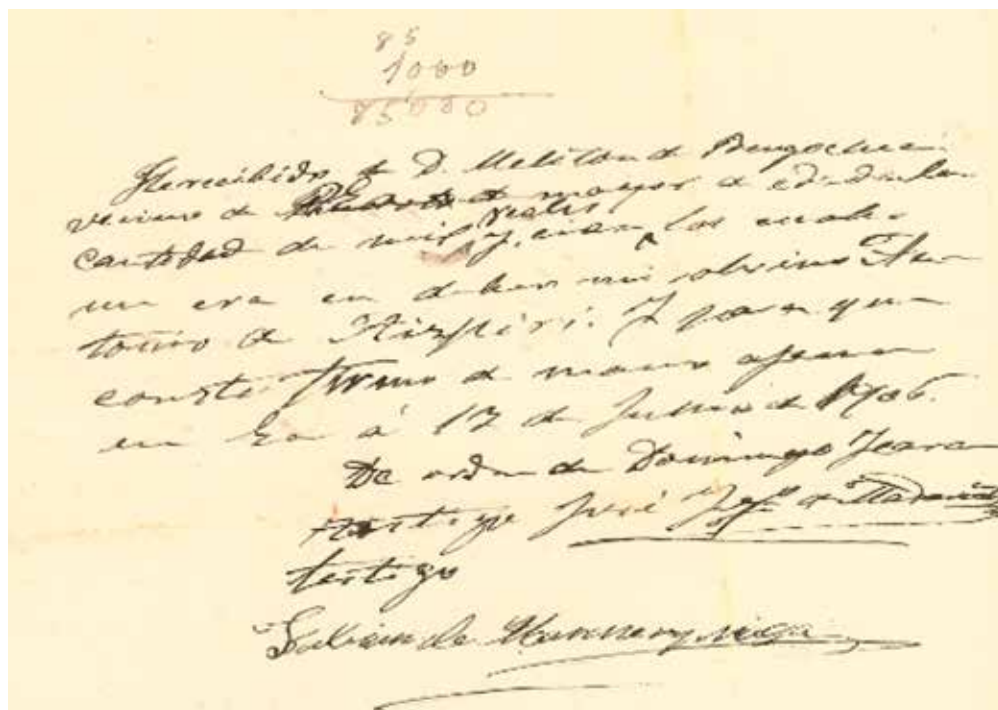 85
1000
85000
He recibido de D. Meliton de Bengochea
vecino de mayor de edad la
cantidad de mil y cien reales los cuales
me era en deber mi sobrino An-
tonio de Aizpiri. Y para que
conste firmo de mano ajena
en Ea á 17 de Junio de 1906.
De orden de Domingo
testigo José de
testigo
de